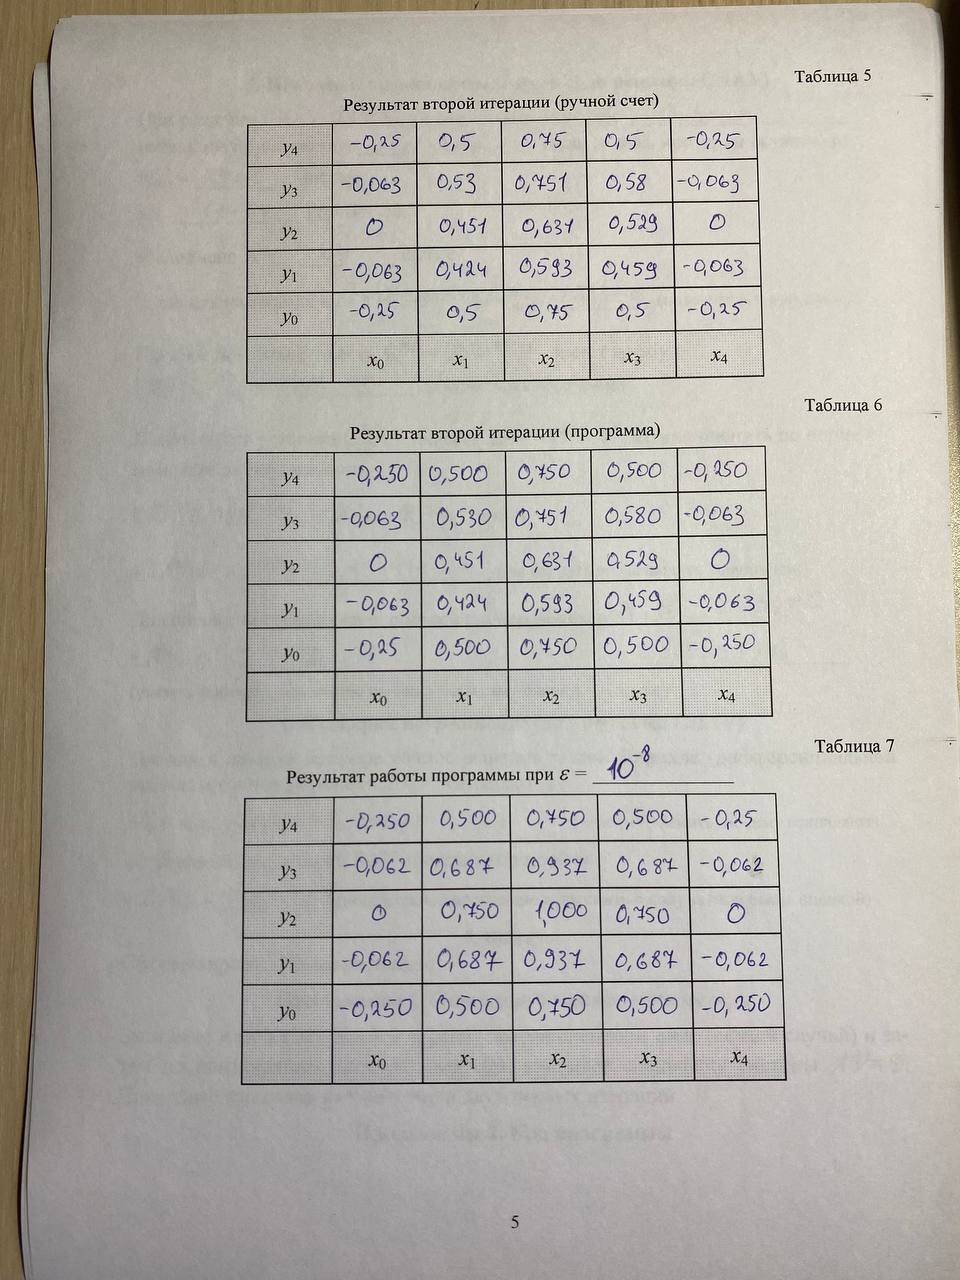 Таблица 5
Результат второй итерации (ручной счет)
y4 -0,25 0,5 0,75 0,5 -0,25
y3 -0,063 0,53 0,751 0,58 -0,063
y2 0 0,451 0,631 0,529 0
y1 -0,063 0,424 0,593 0,459 -0,063
y0 -0,25 0,5 0,75 0,5 -0,25
x0 x1 x2 x3 x4
Таблица 6
Результат второй итерации (программа)
y4 -0,250 0,500 0,750 0,500 -0,250
y3 -0,063 0,530 0,751 0,580 -0,063
y2 0 0,451 0,631 0,529 0
y1 -0,063 0,424 0,593 0,459 -0,063
y0 -0,25 0,500 0,750 0,500 -0,250
x0 x1 x2 x3 x4
Таблица 7
Результат работы программы при ε = 10^-8
y4 -0,250 0,500 0,750 0,500 -0,25
y3 -0,062 0,687 0,937 0,687 -0,062
y2 0 0,750 1,000 0,750 0
y1 -0,062 0,687 0,937 0,687 -0,062
y0 -0,250 0,500 0,750 0,500 -0,250
x0 x1 x2 x3 x4
5